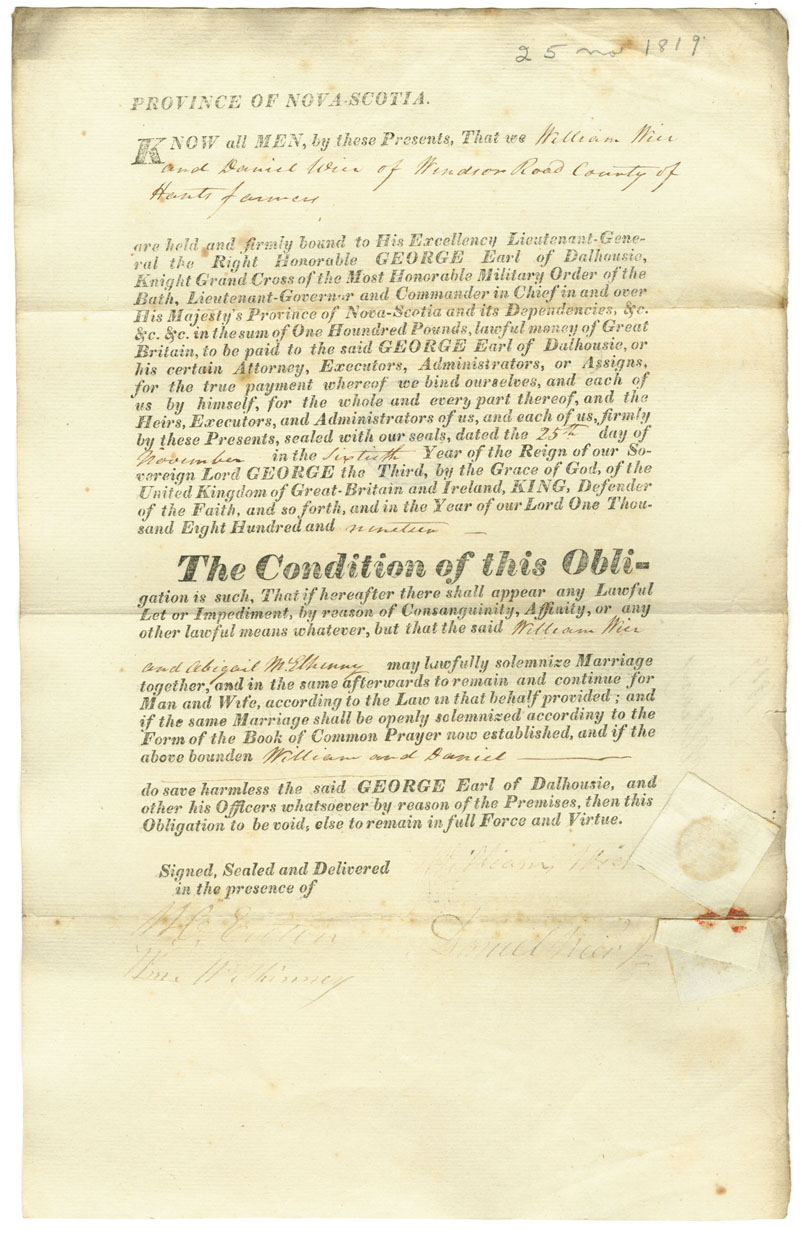 25 no 1819
PROVINCE OF NOVA-SCOTIA.
KNOW all MEN, by these Presents, That we William Wier
and Daniel Wier of Windsor Road County of
Hants farmers
are held and firmly bound to His Excellency Lieutenant-Gene-
ral the Right Honorable GEORGE Earl of Dalhousie,
Knight Grand Cross of the Most Honorable Military Order of the
Bath, Lieutenant-Governor and Commander in Chief in and over
His Majesty's Province of Nova-Scotia and its Dependencies, &c.
&c. &c. in the sum of One Houndred Pounds, lawful money of Great
Britain, to be paid to the said GEORGE Earl of Dalhousie, or
his certain Attorney, Executors, Administrators, or Assigns,
for the true payment whereof we bind ourselves, and each of
us by himself, for the whole and every part thereof, and the
Heirs, Executors, and Administrators of us, and each of us, firmly
by these Presents, sealed with our seals, dated the 25th day of
November in the Sixtieth Year of the Reign of our So-
vereign Lord GEORGE the Third, by the Grace of God, of the
United Kingdom of Great-Britain and Ireland, KING, Defender
of the Faith, and so forth, and in the Year of our Lord One Thou-
sand Eight Hundred and nineteen —
The Condition of this Obli-
gation is such, That if hereafter there shall appear any Lawful
Let or Impediment, by reason of Consanguinity, Affinity, or any
other lawful means whatever, but that the said William Wier
and Abigail McElhenny may lawfully solemnize Marriage
together, and in the same afterwards to remain and continue for
Man and Wife, according to the Law in that behalf provided; and
if the same Marriage shall be openly solemnized accordiny to the
Form of the Book of Common Prayer now established, and if the
above bounden William and Daniel —
do save harmless the said GEORGE Earl of Dalhousie, and
other his Officers whatsoever by reason of the Premises, then this
Obligation to be void, else to remain in full Force and Virtue.
Signed, Sealed and Delivered
in the presence of
William Wier
Daniel Wier